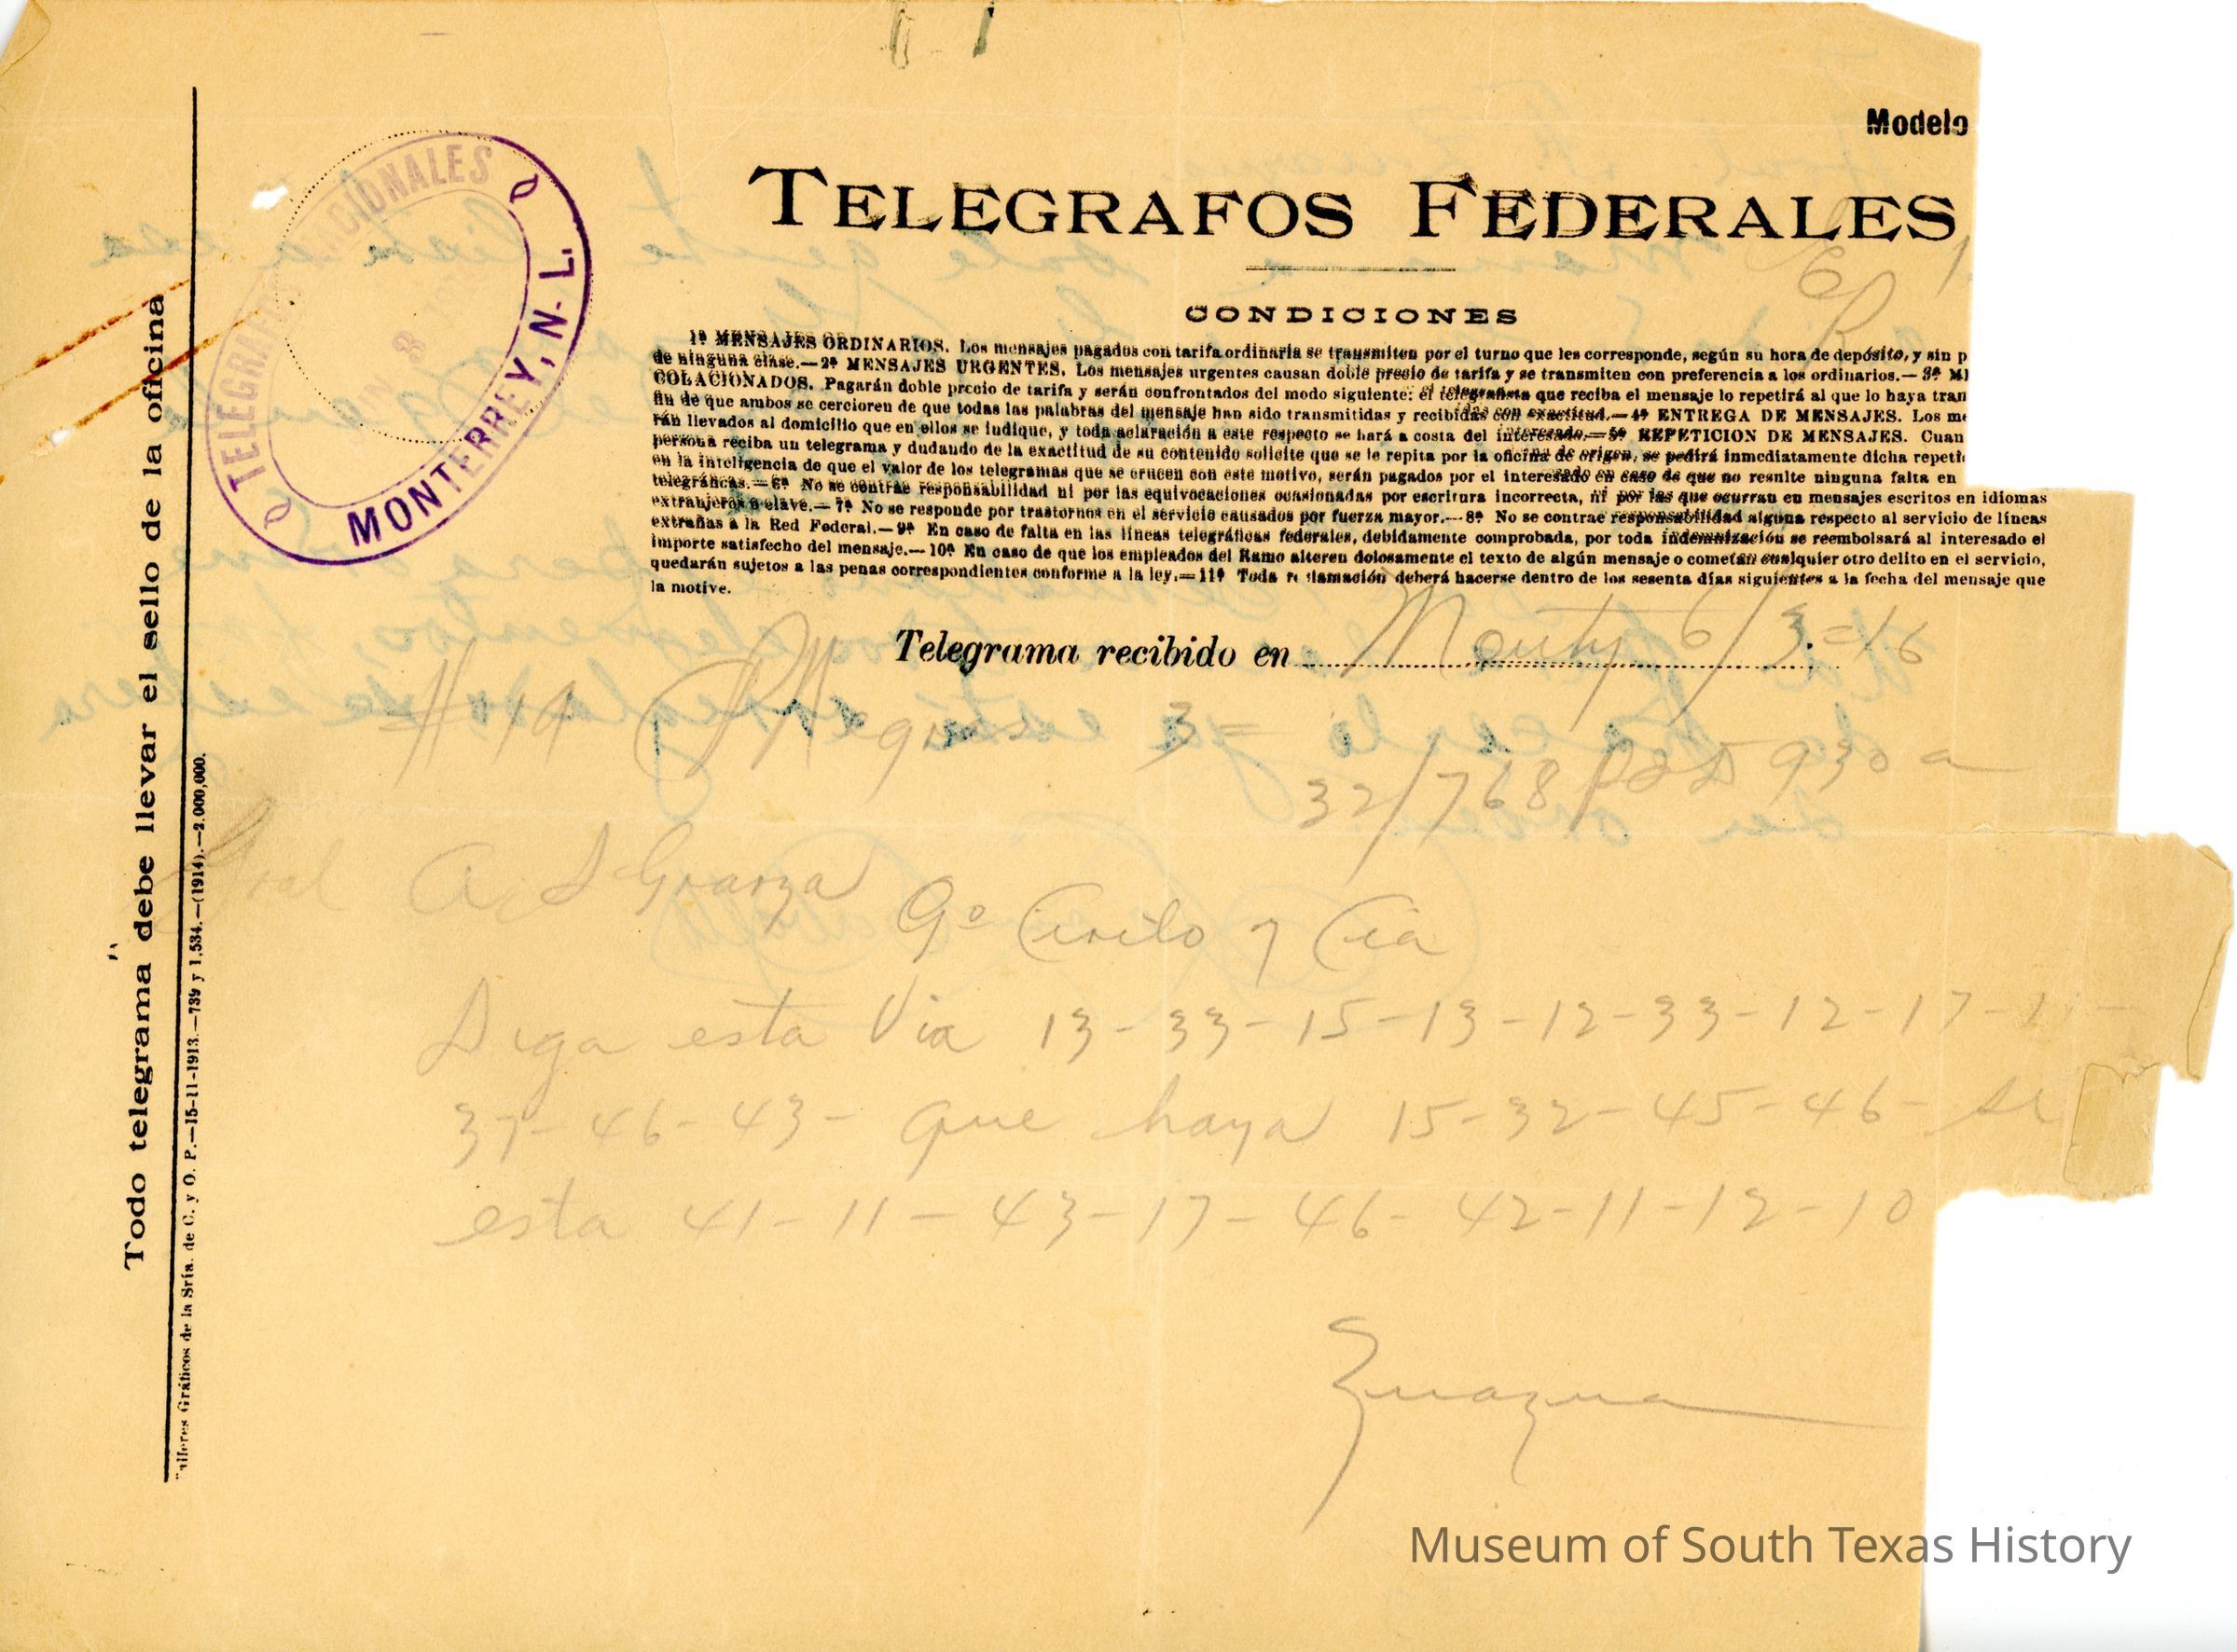 Modelo
TELEGRAFOS FEDERALES
CONDICIONES
1ª MENSAJES ORDINARIOS. Los mensajes pagados con tarifa ordinaria se transmiten por el turno que les corresponde, según su hora de depósito, y sin p
de ninguna clase.—2ª MENSAJES URGENTES. Los mensajes urgentes causan doble precio de tarifa y se transmiten con preferencia a los ordinarios.—3ª M
COLACIONADOS. Pagarán doble precio de tarifa y serán confrontados del modo siguiente: el telegrafista que reciba el mensaje lo repetirá al que lo haya tran
fin de que ambos se cercioren de que todas las palabras del mensaje han sido transmitidas y recibidas con exactitud.—4ª ENTREGA DE MENSAJES. Los me
rán llevados al domicilio que en ellos se indique, y toda aclaración a este respecto se hará a costa del interesado.—5ª REPETICION DE MENSAJES. Cuan
persona reciba un telegrama y dudando de la exactitud de su contenido solicite que se le repita por la oficina de origen, se pedirá inmediatamente dicha repeti
en la inteligencia de que el valor de los telegramas que se crucen con este motivo, serán pagados por el interesado en caso de que no resulte ninguna falta en
telegráficas.—6ª No se contrae responsabilidad ni por las equivocaciones ocasionadas por escritura incorrecta, ni por las que ocurran en mensajes escritos en idiomas
extranjeros o clave.—7ª No se responde por trastornos en el servicio causados por fuerza mayor.—8ª No se contrae responsabilidad alguna respecto al servicio de líneas
extrañas a la Red Federal.—9ª En caso de falta en las líneas telegráficas federales, debidamente comprobada, por toda indemnización se reembolsará al interesado el
importe satisfecho del mensaje.—10ª En caso de que los empleados del Ramo alteren dolosamente el texto de algún mensaje o cometan cualquier otro delito en el servicio,
quedarán sujetos a las penas correspondientes conforme a la ley.—11ª Toda reclamación deberá hacerse dentro de los sesenta días siguientes a la fecha del mensaje que
la motive.
Telegrama recibido en Monty 6/3=16
3=
32/768 930 a
Gral A. D Graza
9º Cirilo y Cia
Diga esta Via 13-33-15-13-12-33-12-17-
37-46-43- que haya 15-32-45-46- se
esta 41-11-43-17-46-42-11-12-10
Zuazua
TELEGRAFOS NACIONALES
MONTERREY, N. L.
Todo telegrama debe llevar el sello de la oficina
Talleres Gráficos de la Sría. de C. y O. P.—15-11-1913.—739 y 1.534.—(1914).—2.000,000.
Museum of South Texas History